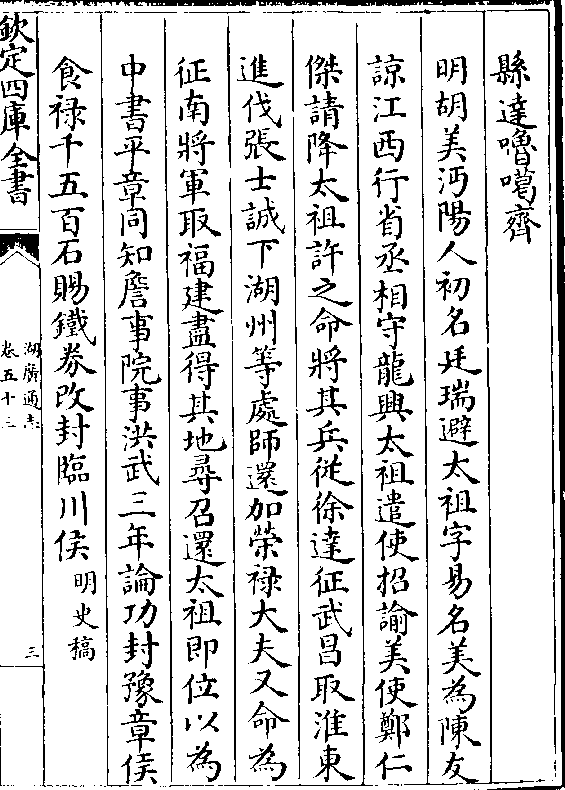 縣達嚕噶齊
明胡美沔陽人初名廷瑞避太祖字易名美為陳友
諒江西行省丞相守龍興太祖遣使招諭美使鄭仁
傑請降太祖許之命將其兵從徐達征武昌取淮東
進伐張士誠下湖州等處師還加榮祿大夫又命為
征南將軍取福建盡得其地尋召還太祖即位以為
中書平章同知詹事院事洪武三年論功封豫章侯
食祿千五百石賜鐵券改封臨川侯 明史稿
欽定四庫全書
湖廣通志
卷五十三
三